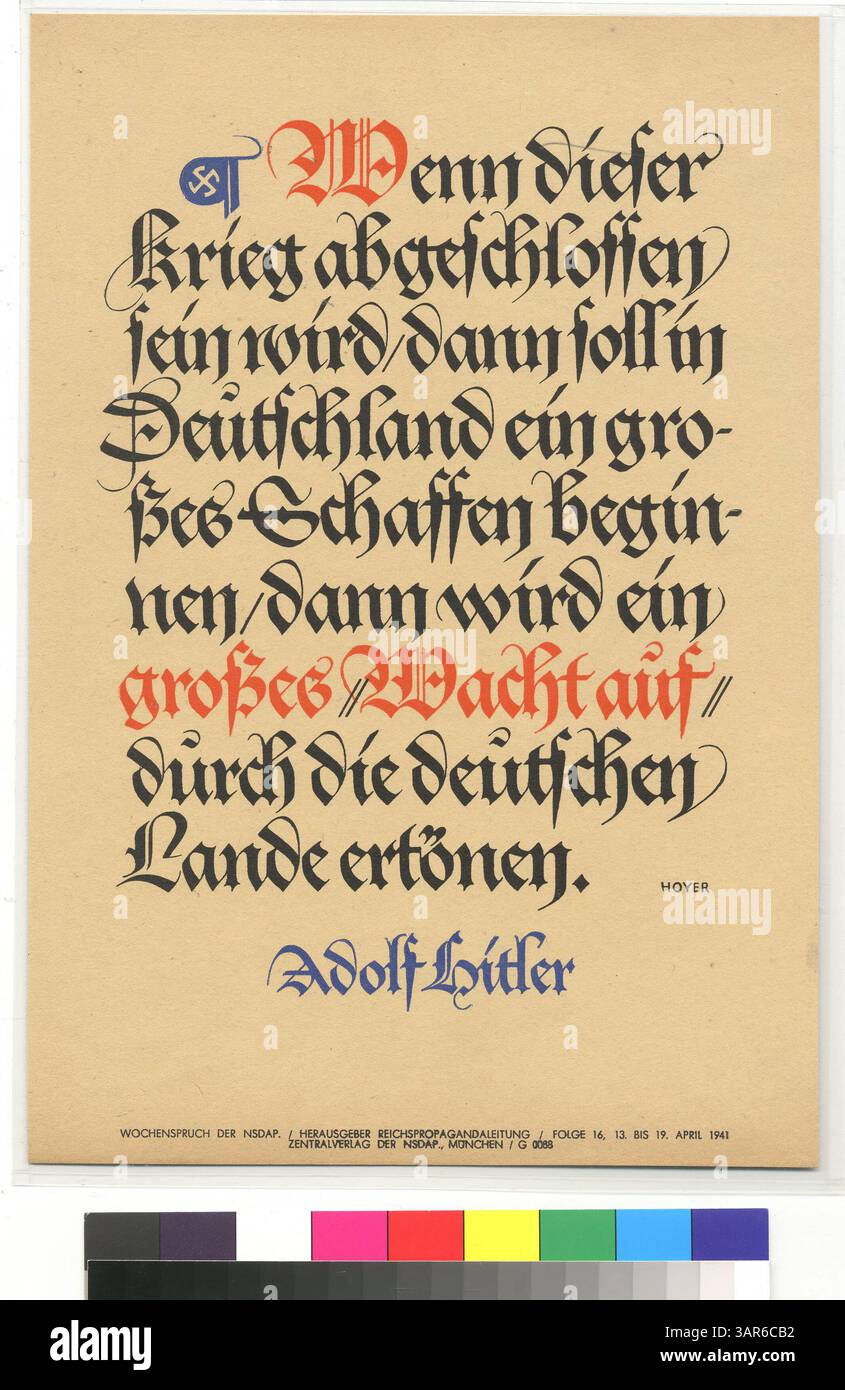 Wenn dieser
Krieg abgeschlossen
sein wird/dann soll in
Deutschland ein gro-
ßes Schaffen begin-
nen/dann wird ein
großes "Wacht auf"
durch die deutschen
Lande ertönen.
HOYER
Adolf Hitler
WOCHENSPRUCH DER NSDAP. / HERAUSGEBER REICHSPROPAGANDALEITUNG / FOLGE 16, 13. BIS 19. APRIL 1941
ZENTRALVERLAG DER NSDAP., MÜNCHEN / G 0088
alamy
Image ID: 3AR6CB2
www.alamy.com